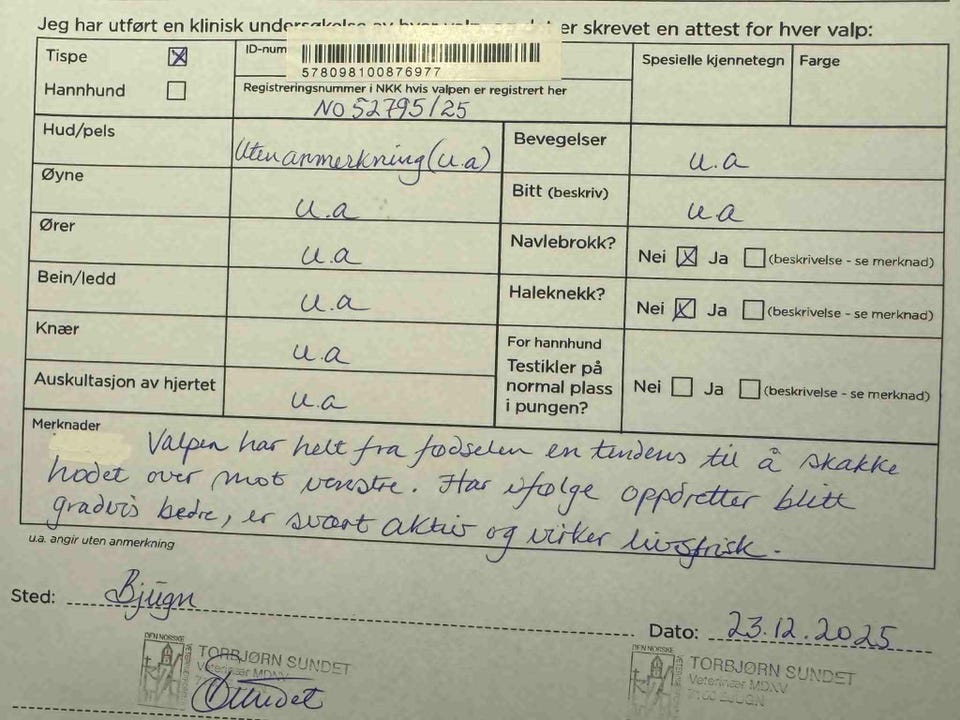 Jeg har utført en klinisk undersøkelse av hver valp, og det er skrevet en attest for hver valp:
Tispe ☒
ID-num
578098100876977
Spesielle kjennetegn
Farge
Hannhund ☐
Registreringsnummer i NKK hvis valpen er registrert her
NO 52795/25
Hud/pels
Uten anmerkning (u.a)
Bevegelser
u.a
Øyne
u.a
Bitt (beskriv)
u.a
Ører
u.a
Navlebrokk?
Nei ☒ Ja ☐ (beskrivelse - se merknad)
Bein/ledd
u.a
Haleknekk?
Nei ☒ Ja ☐ (beskrivelse - se merknad)
Knær
u.a
For hannhund
Testikler på
normal plass
i pungen?
Nei ☐ Ja ☐ (beskrivelse - se merknad)
Auskultasjon av hjertet
u.a
Merknader
Valpen har helt fra fødselen en tendens til å skakke
hodet over mot venstre. Har ifølge oppdretter blitt
gradvis bedre, er svært aktiv og virker livsfrisk.
u.a. angir uten anmerkning
Sted: Bjugn
Dato: 23.12.2025
DEN NORSKE
TORBJØRN SUNDET
Veterinær MDNV
Sundet
DEN NORSKE
TORBJØRN SUNDET
Veterinær MDNV
7160 BJUGN